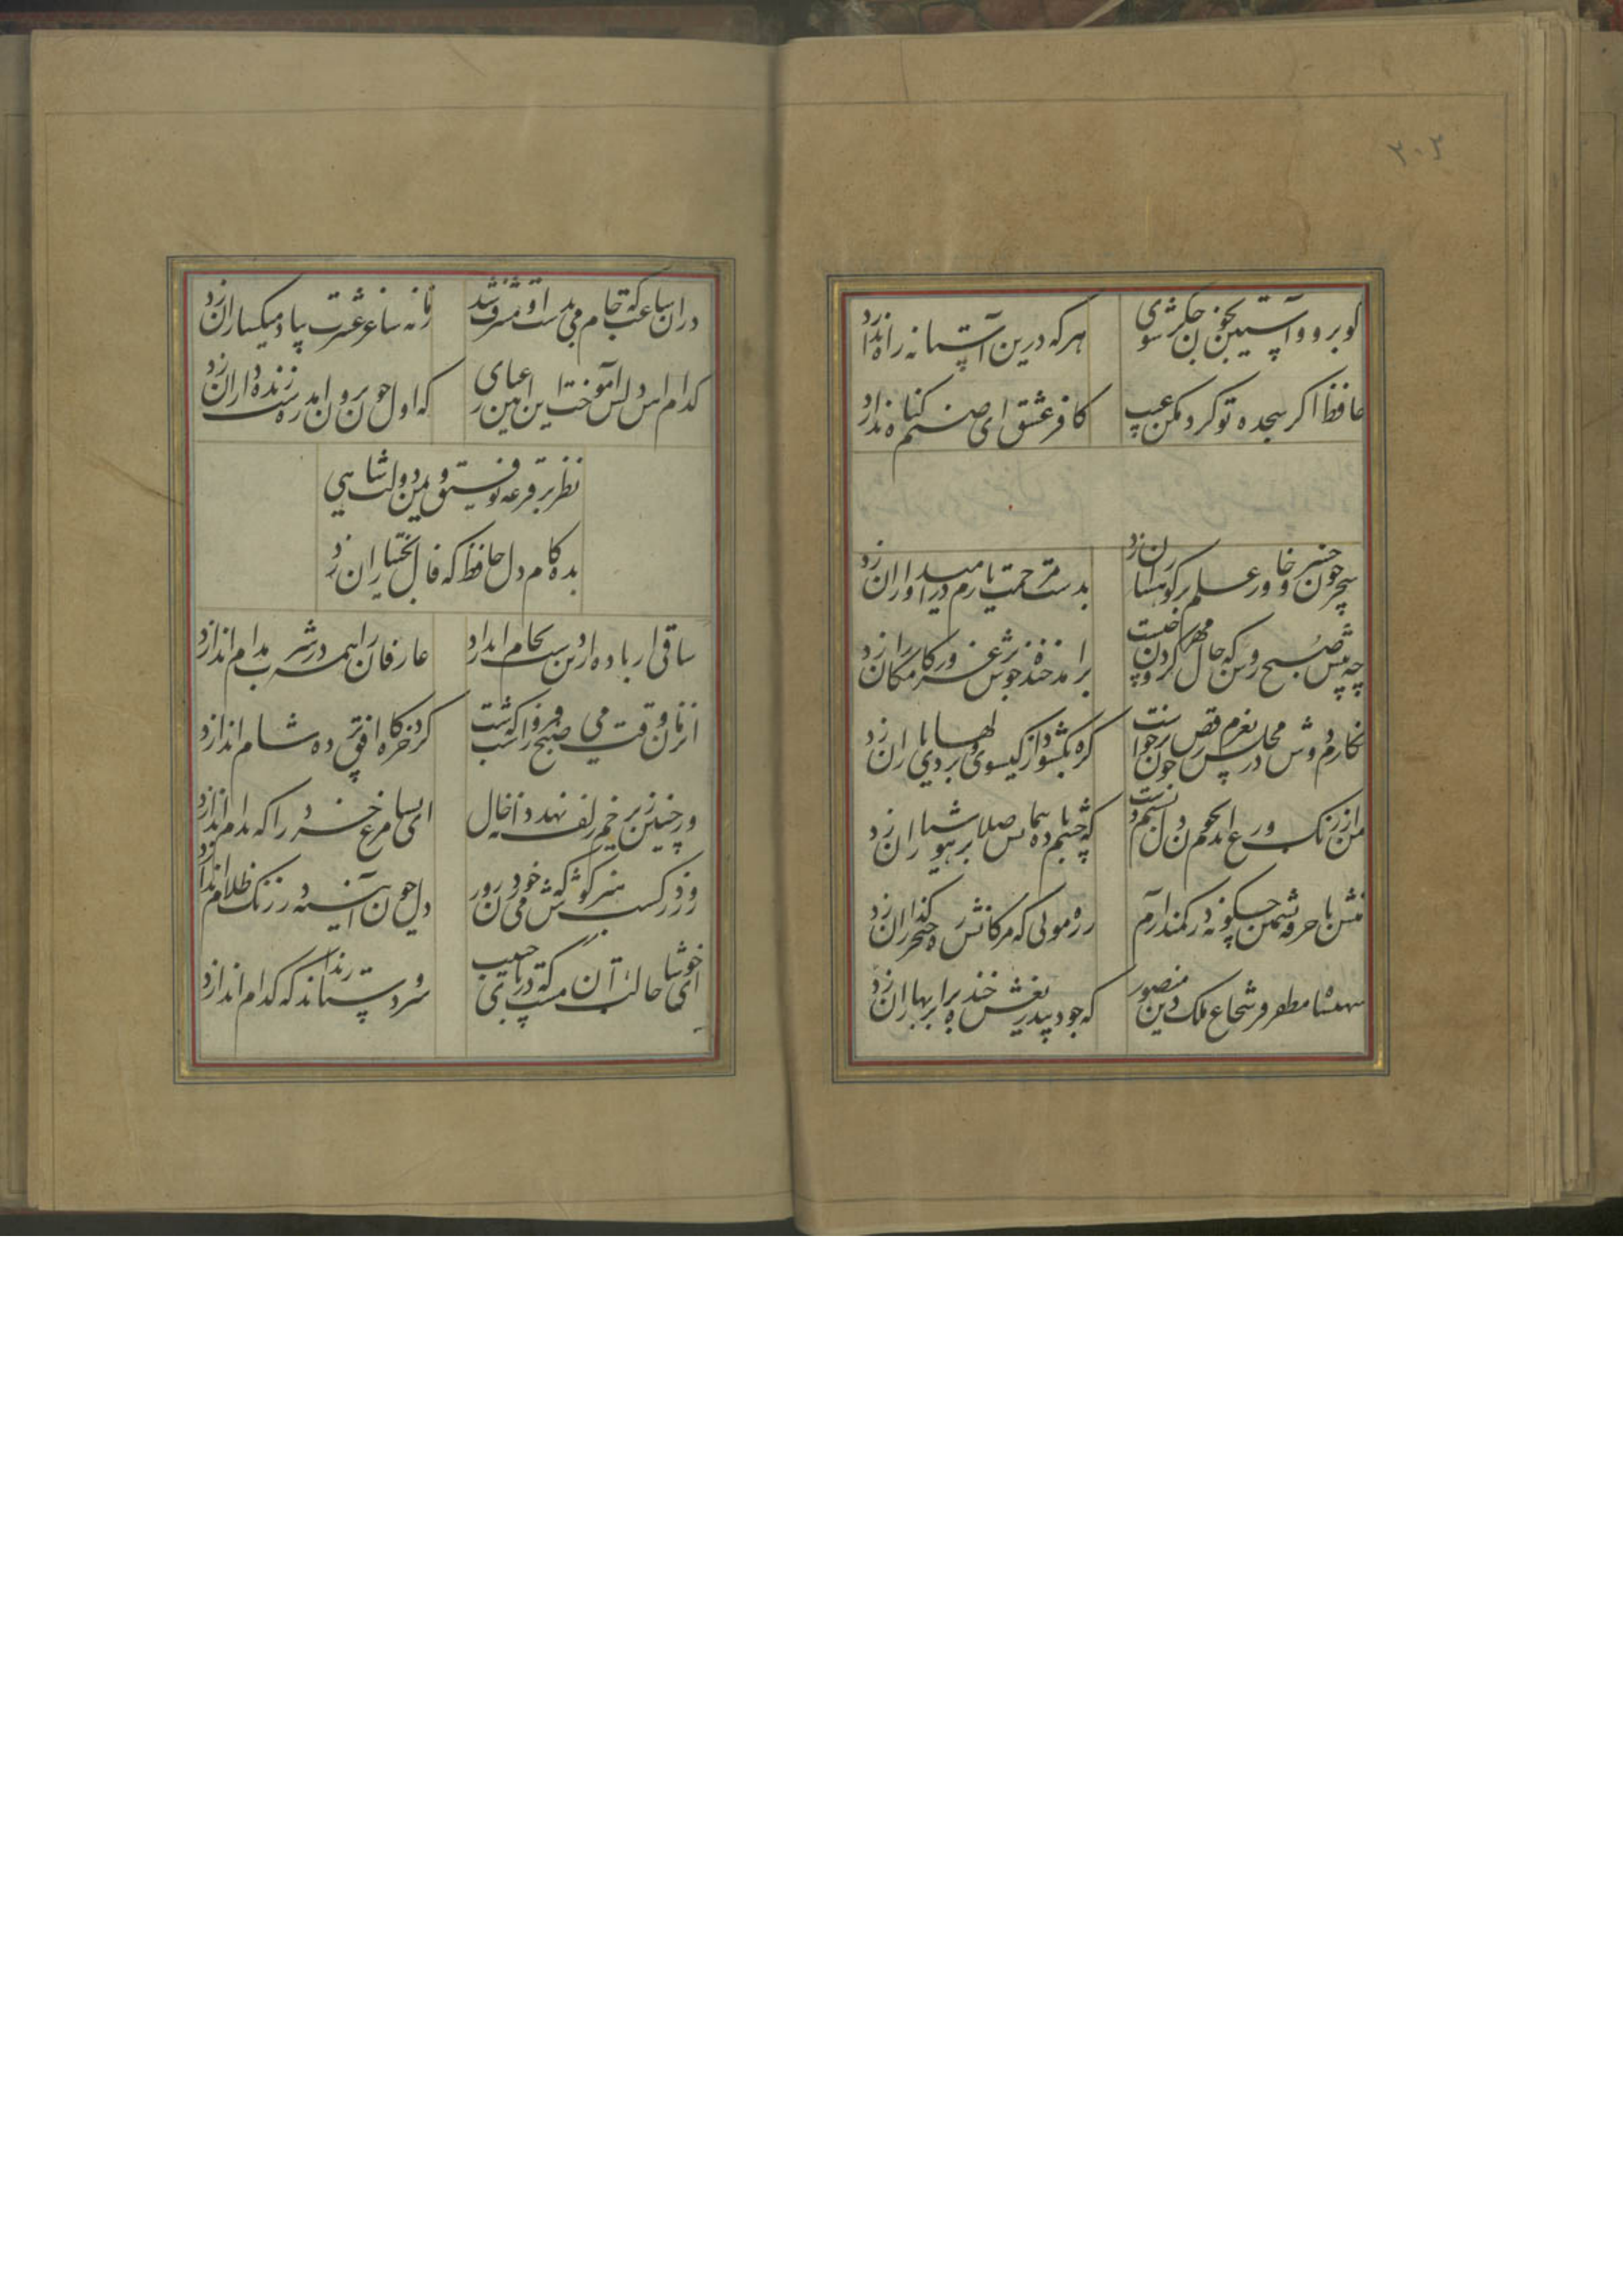 ۲۰۲
کو برو و آستین بخون جکر شوی
هرکه درین آستانه راه ندارد
حافظ اکر سجده تو کرد مکن عیب
کافر عشق ای صنم کناه ندارد
سحر چون خسرو خاور علم بر کوهساران زد
بدست مرحمت یارم در امیدواران زد
چه پیش صبح روشن که حال مهر کردون چیست
برامد خنده خوش بر غرور کامکاران زد
نکارم دوش در مجلس بعزم رقص چون برخواست
کره بکشود از کیسو و بر دلهای یاران زد
من از رنک ورع اندم بخون دل بشستم دست
که چشم باده پیمایش صلا بر هوشیاران زد
منش با خرقه پشمین چکونه در کمند ارم
زره مویی که مژکانش ره خنجر کذاران زد
شهنشاه مظفر فر شجاع ملک و دین منصور
که جود بیدریغش خنده بر ابر بهاران زد
دران ساعت که جام می بدست او مشرف شد
زمانه ساغر عشرت بیاد میکساران زد
کدام اهن دلش آموخت این آیین عیاری
که اول چون برون امد ره شب زنده داران زد
نظر بر قرعه توفیق و یمن دولت شاهی
بده کام دل حافظ که فال بختیاران زد
ساقی ار باده ازین دست بجام اندازد
عارفان را همه در شرب مدام اندازد
انزمان وقت می صبح فروغست که شب
کرد خرکاه افق پرده شام اندازد
ورچنین زیر خم زلف نهد دانه خال
ای بسا مرغ خرد را که بدام اندازد
روز در کسب هنر کوش که می خوردن روز
دل چون آینه در زنک ظلام اندازد
ای خوشا حالت آن مست که در پای حبیب
سر و دستار نداند که کدام اندازد